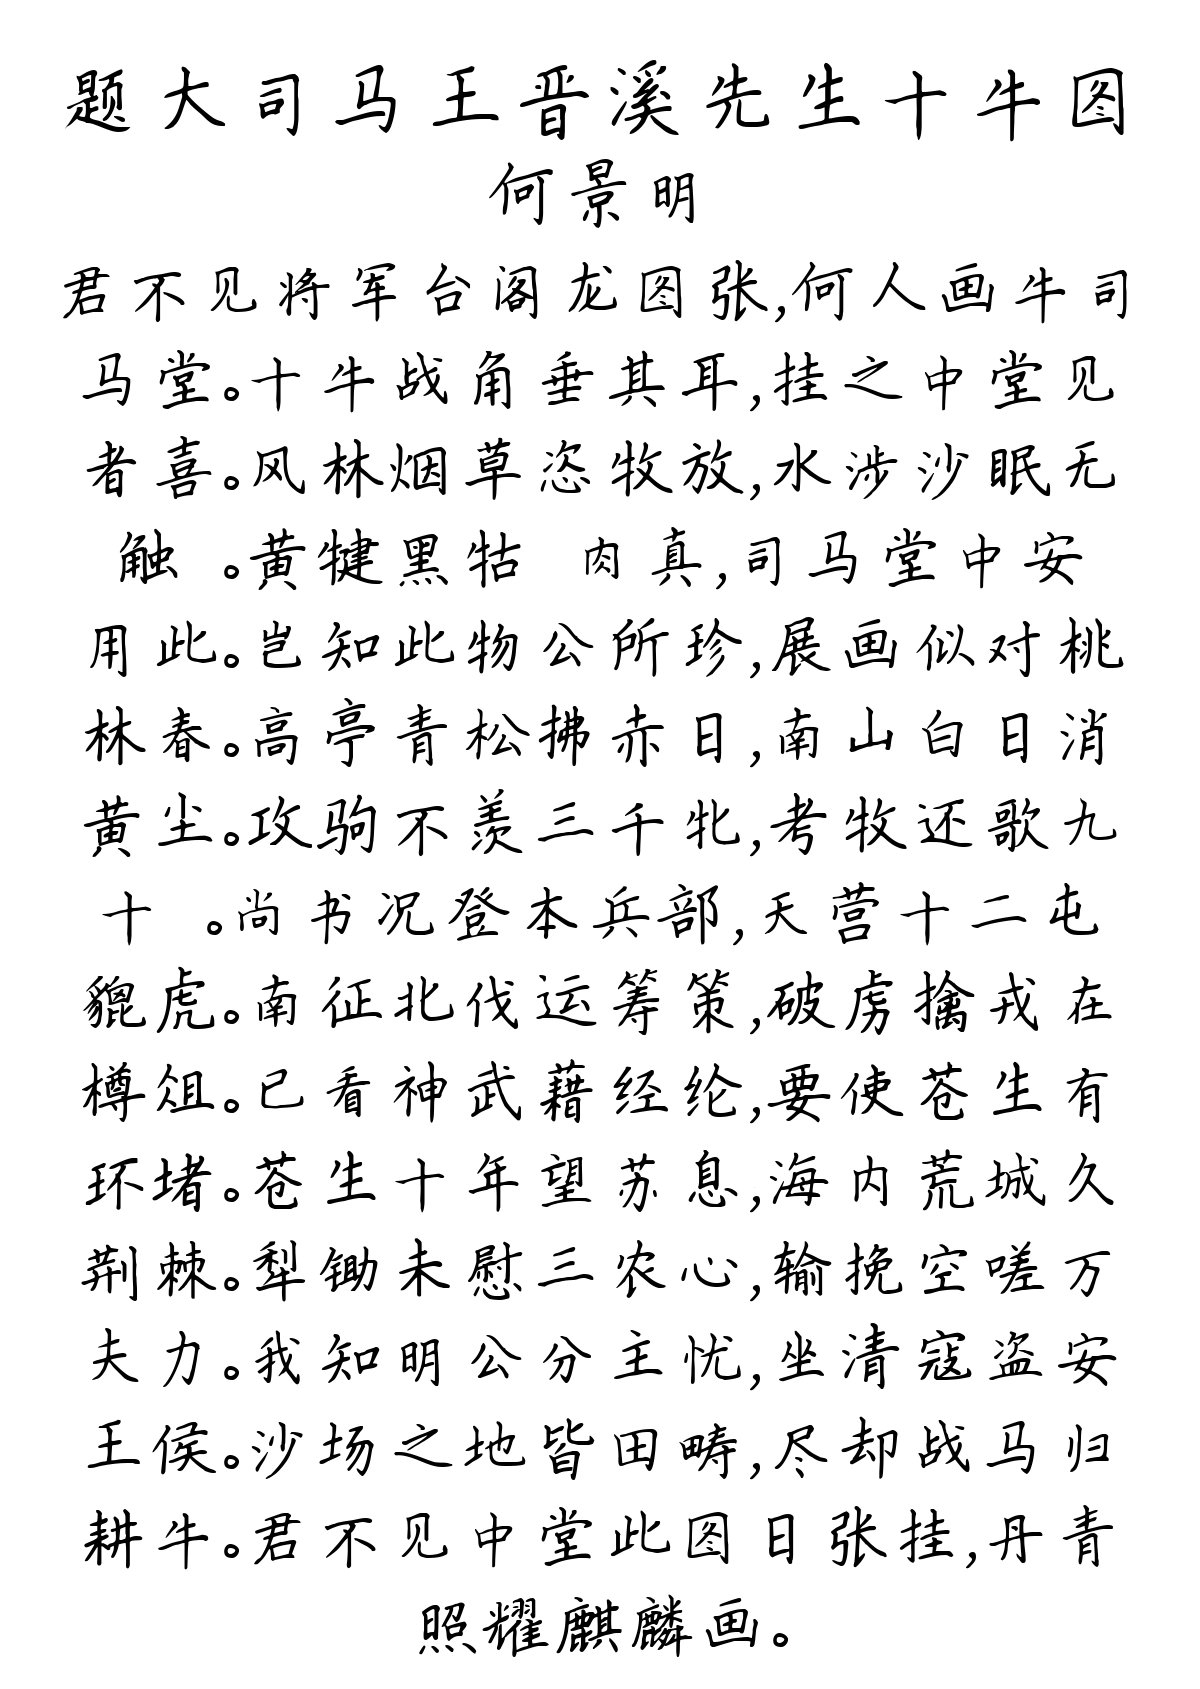 题大司马王晋溪先生十牛图
何景明
君不见将军台阁龙图张,何人画牛司
马堂。十牛战角垂其耳,挂之中堂见
者喜。风林烟草恣牧放,水涉沙眠无
触 。黄犍黑牯 肉真,司马堂中安
用此。岂知此物公所珍,展画似对桃
林春。高亭青松拂赤日,南山白日消
黄尘。攻驹不羡三千牝,考牧还歌九
十 。尚书况登本兵部,天营十二屯
貔虎。南征北伐运筹策,破虏擒戎在
樽俎。已看神武藉经纶,要使苍生有
环堵。苍生十年望苏息,海内荒城久
荆棘。犁锄未慰三农心,输挽空嗟万
夫力。我知明公分主忧,坐清寇盗安
王侯。沙场之地皆田畴,尽却战马归
耕牛。君不见中堂此图日张挂,丹青
照耀麒麟画。